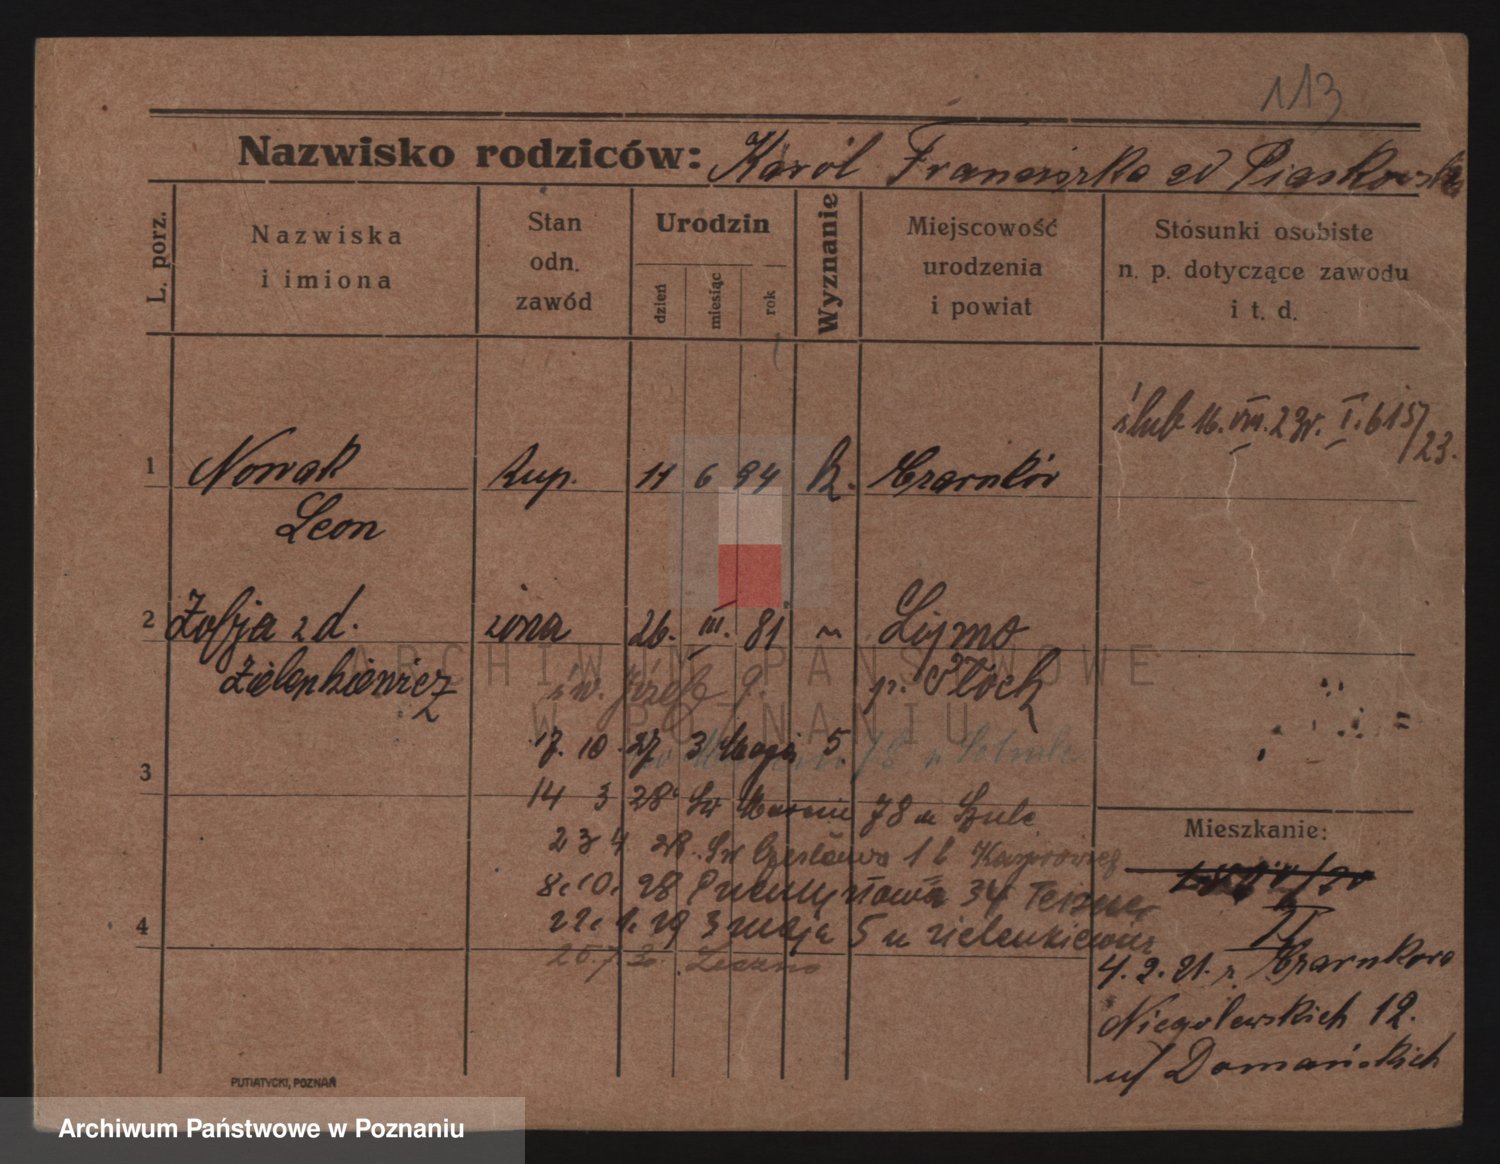 113
Nazwisko rodziców: Karól Franciszka zd Piaskowska
L. porz.
Nazwiska i imiona
Stan odn. zawód
Urodzin
dzień
miesiąc
rok
Wyznanie
Miejscowość urodzenia i powiat
Stósunki osobiste n. p. dotyczące zawodu i t. d.
ślub 16. VIII. 23r. I. 615/23.
1 Nowak kup. 11 6 94 Czarnków
Leon
2 Zofja zd. żona 26. III. 81 "
Zielenkiewicz p. Płock
św. Józefa 9.
17. 10. 27 3 Maja 5.
3
14 3 28 Św Marcin 78 u Szulc
23 4. 28. Św Czesława 1 b
8. 10. 28 34
Mieszkanie:
4 22. 1. 29 3 maja 5 u Zielenkiewicz
4. 2. 21. z Czarnkowa
Niegolewskich 12.
u/ Domańskich
PUTIATYCKI, POZNAŃ
ARCHIWUM PAŃSTWOWE
W POZNANIU
Archiwum Państwowe w Poznaniu